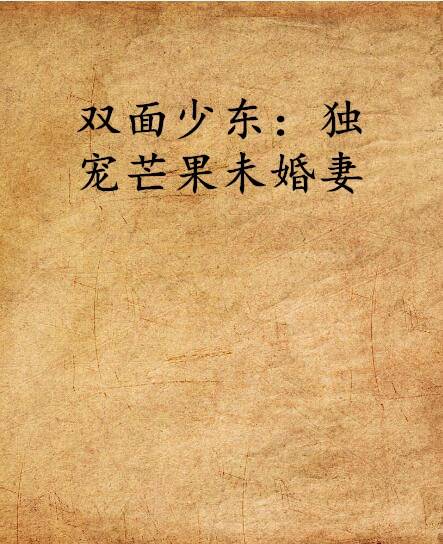 双面少东：独
宠芒果未婚妻